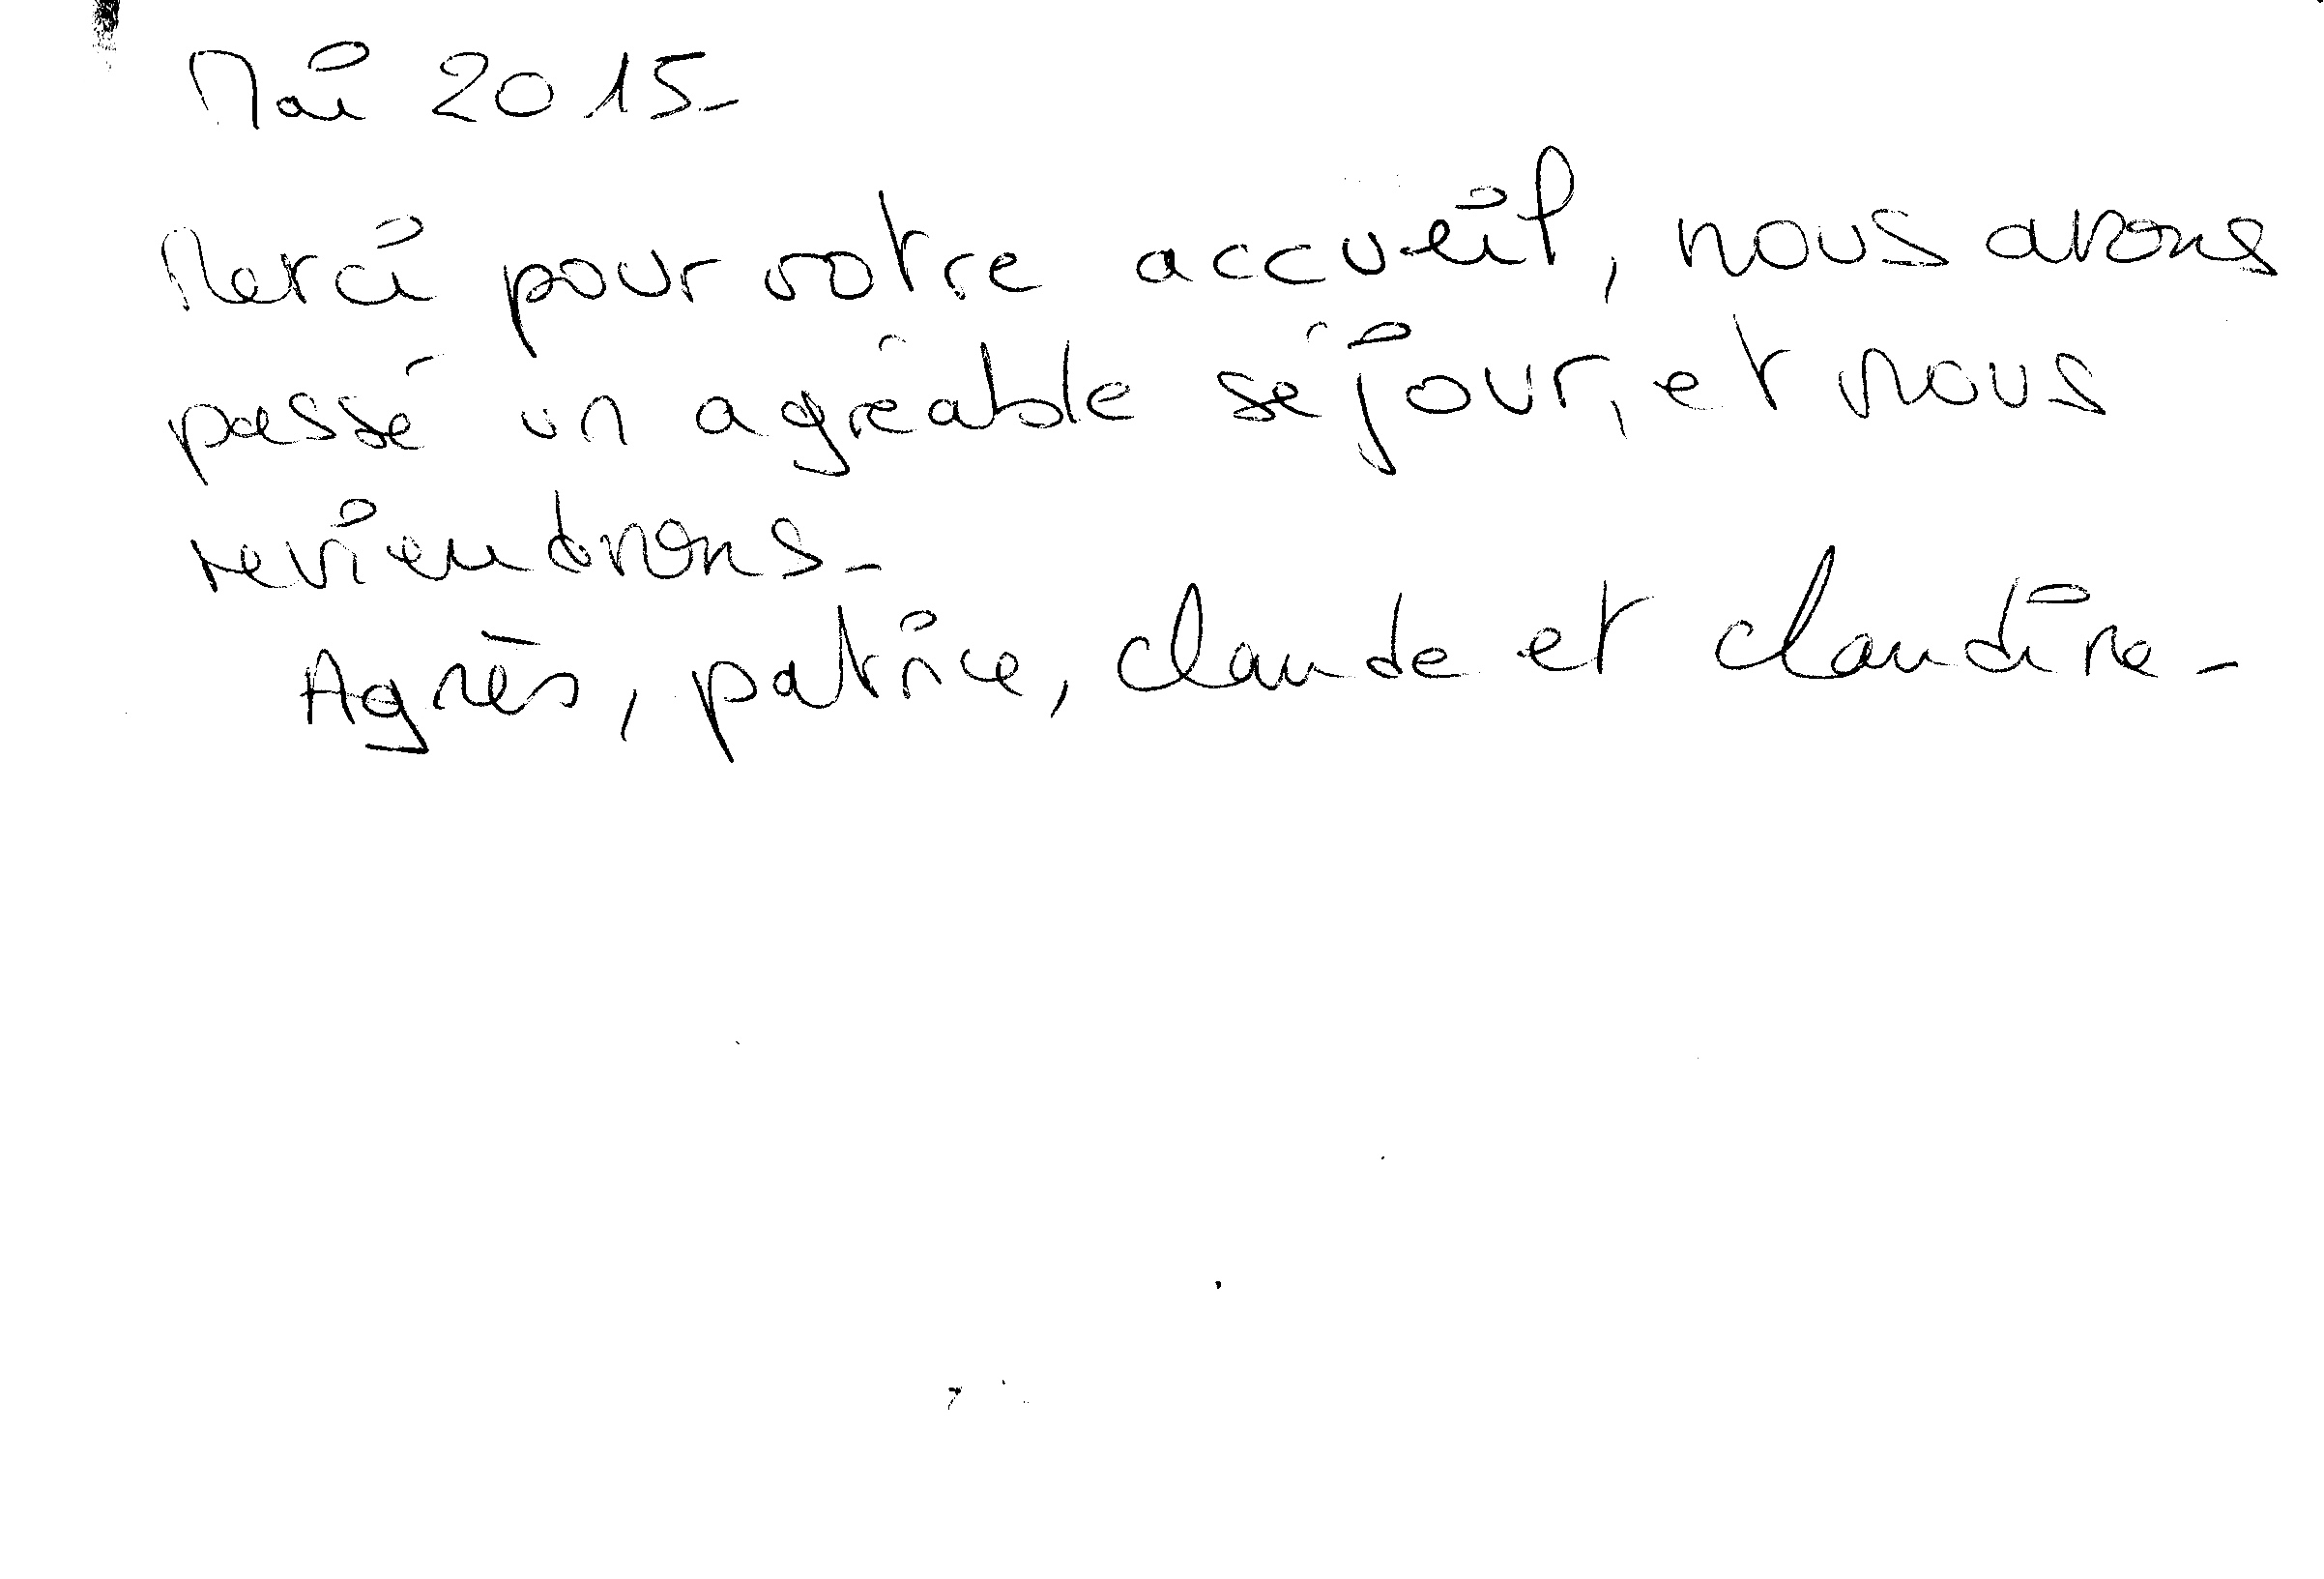 Mai 2015-
Merci pour votre accueil, nous avons
passé un agréable séjour, et nous
reviendrons-
Agnès, patrice, claude et claudine-